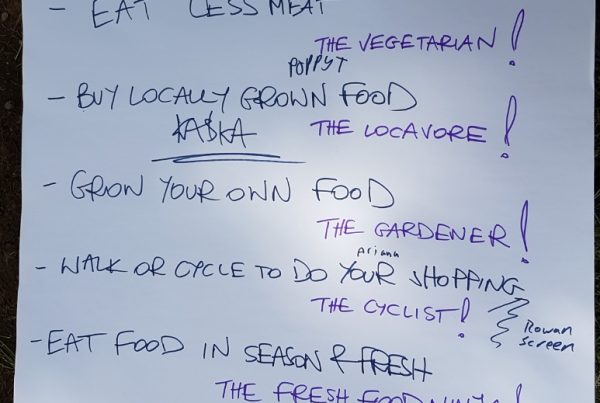 - EAT LESS MEAT
THE VEGETARIAN!
POPPYT
- BUY LOCALLY GROWN FOOD
KASKA THE LOCAVORE!
- GROW YOUR OWN FOOD
THE GARDENER!
ariana
- WALK OR CYCLE TO DO YOUR SHOPPING
THE CYCLIST!
Rowan
screen
- EAT FOOD IN SEASON & FRESH
THE FRESH FOOD !